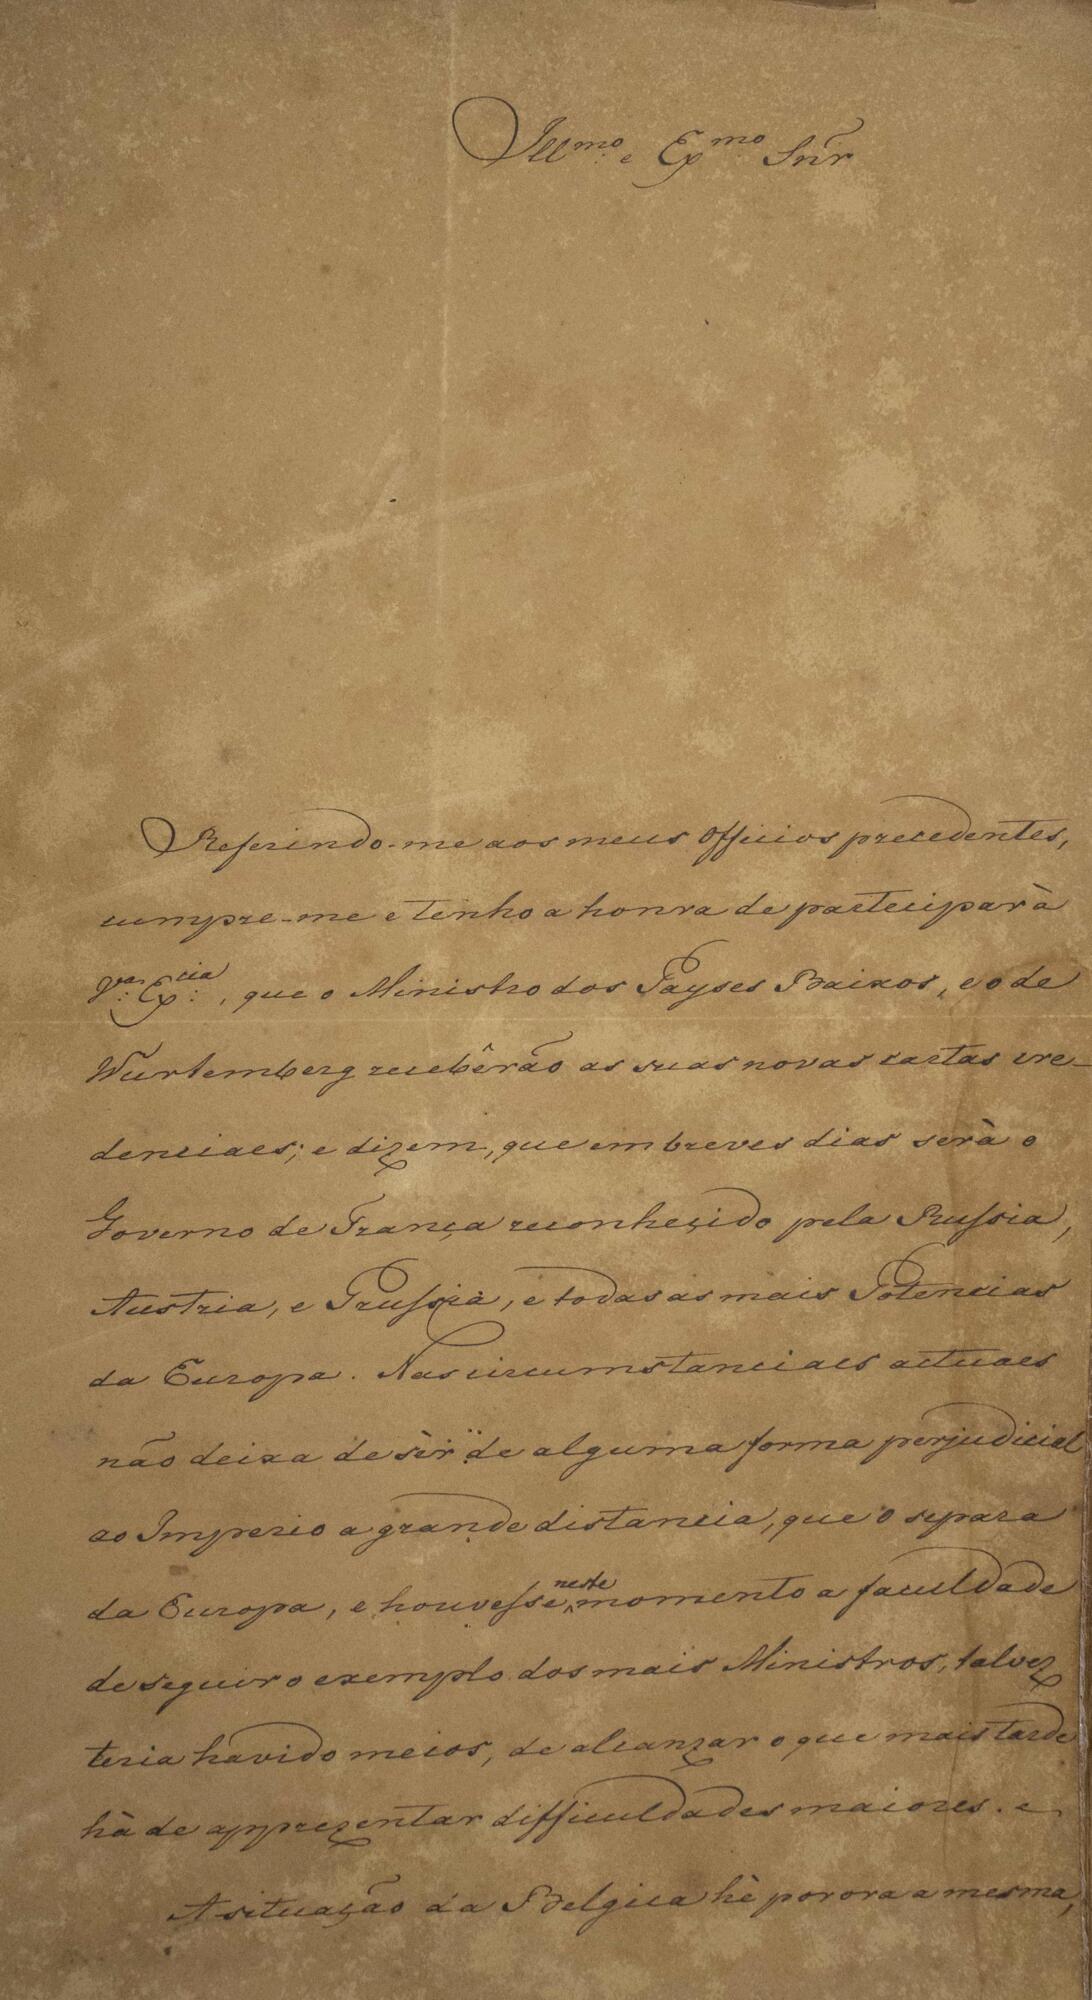 Illmo. e Exmo. Snr̃
Referindo-me aos meus Officios precedentes,
cumpre-me e tenho a honra de participar à
Va. Excia., que o Ministro dos Payses Baixos, e o de
Wurtemberg recebêrão as suas novas cartas cre-
denciaes; e dizem, que em breves dias serà o
Governo de França reconheçido pela Russia,
Austria, e Prussia, e todas as mais Potencias
da Europa. Nas circumstanciaes actuaes
não deixa de sèr de alguma forma perjudicial
ao Imperio a grande distancia, que o separa
da Europa, e houvesse neste momento a faculdade
de seguir o exemplo dos mais Ministros, talvez
teria havido meios, de alcanzar o que mais tarde
hà de apprezentar difficuldades maiores. e
A situação da Belgica hè por ora a mesma,